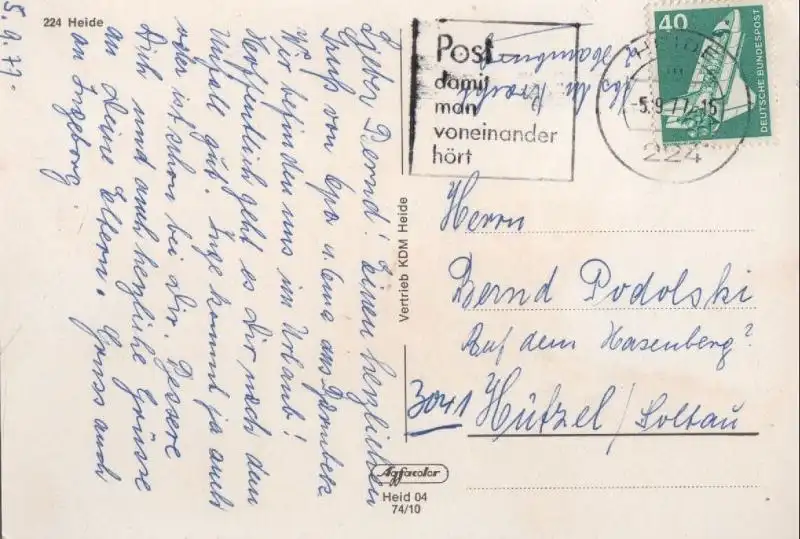 224 Heide
5.9.77.
Lieber Bernd! Einen herzlichen
Gruß von Opa u. Oma aus
Wir befinden uns im Urlaub!
Hoffentlich geht es Dir nach dem
Unfall gut. Inge kommt ja auch
oder ist schon bei Dir. Bessere
Dich und auch herzliche Grüsse
an Deine Eltern. Gruss auch
an Ingeborg.
Post
damit
man
voneinander
hört
40
DEUTSCHE BUNDESPOST
HEIDE
-5.9.77-15
224
Vertrieb KDM Heide
Herrn
Bernd Podolski
Auf dem Hasenberg?
3041 Hützel/Soltau
Agfacolor
Heid 04
74/10